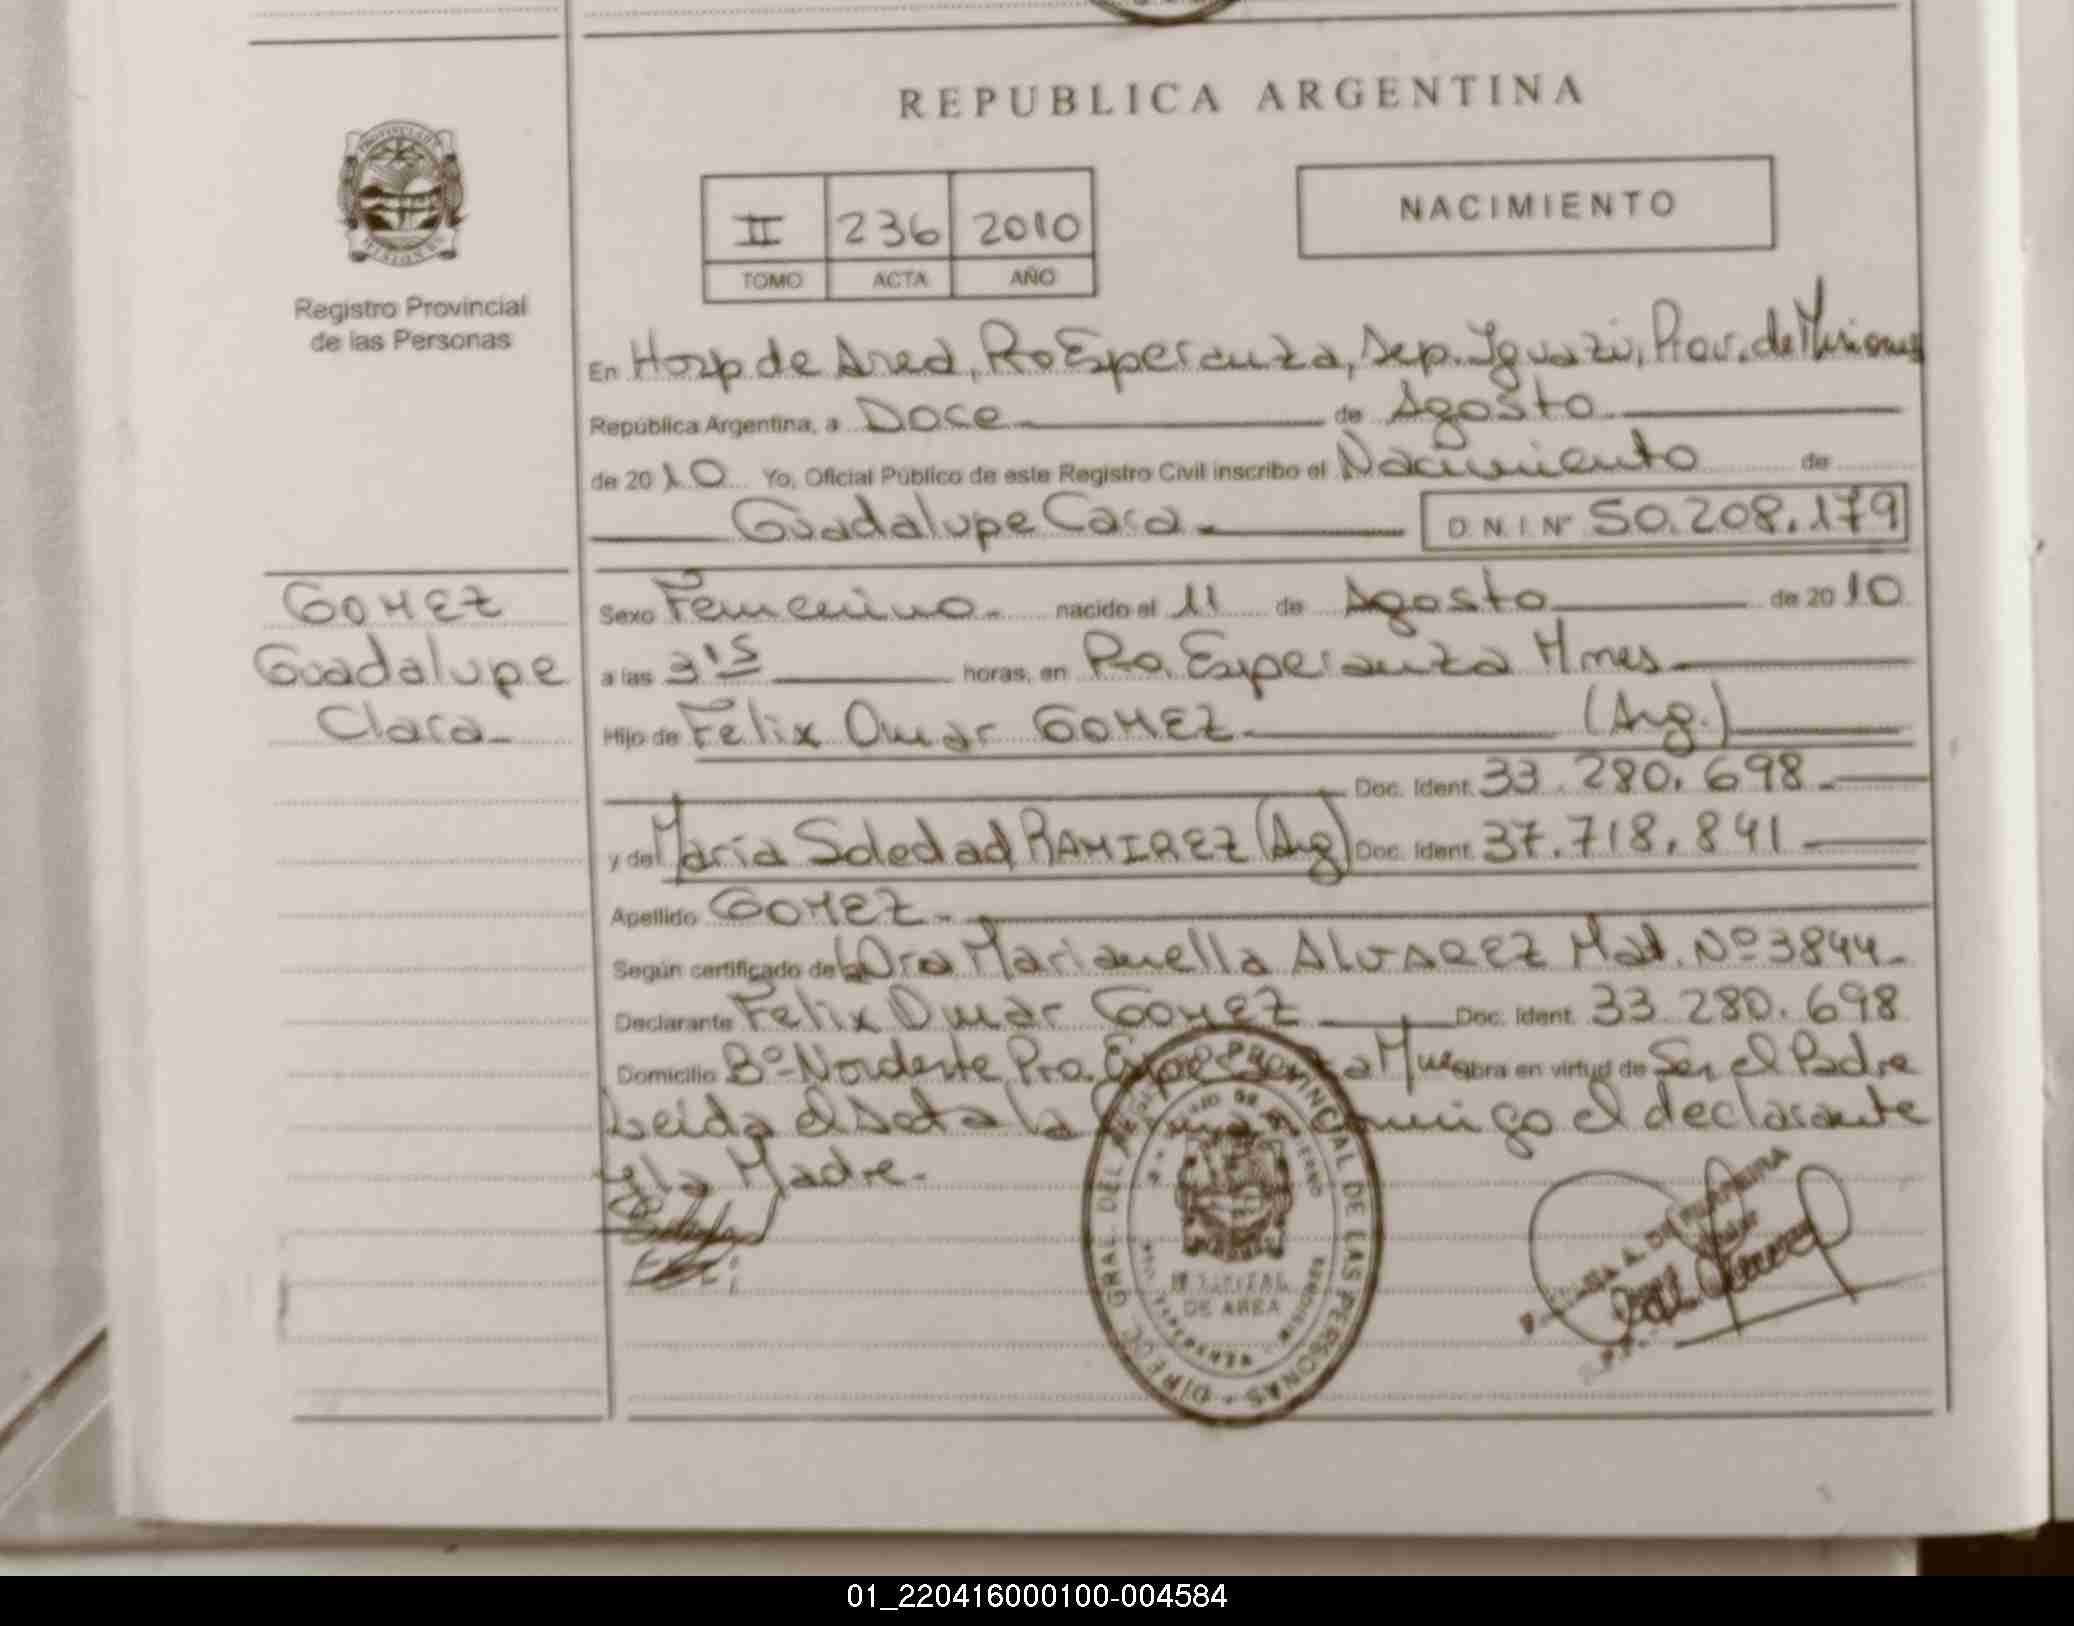 REPUBLICA ARGENTINA
NACIMIENTO
II 236 2010
TOMO ACTA AÑO
Registro Provincial
de las Personas
En Hosp de Area, Pto Esperanza, Dep. Iguazú, Prov. de Misiones
República Argentina, a Doce de Agosto
de 2010 Yo, Oficial Público de este Registro Civil inscribo el Nacimiento de
Guadalupe Cara D.N.I. Nº 50.208.179
GOMEZ
Guadalupe
Clara
Sexo Femenino nacido el 11 de Agosto de 2010
a las 3'15 horas, en Pto. Esperanza Mnes
Hijo de Felix Omar GOMEZ (Arg.)
Doc. Ident. 33.280.698
y de Maria Soledad RAMIREZ (Arg) Doc. Ident. 37.718.841
Apellido GOMEZ
Según certificado de la Dra Marianella ALVAREZ Mat. Nº 3844
Declarante Felix Omar GOMEZ Doc. Ident. 33.280.698
Domicilio Bº Nordeste Pto. Esperanza Mnes obra en virtud de Ser el Padre
Leida el acta la conmigo el declarante
y la Madre.
DIRECC. GRAL. DEL REGISTRO PROVINCIAL DE LAS PERSONAS
HOSPITAL
DE AREA
01_220416000100-004584